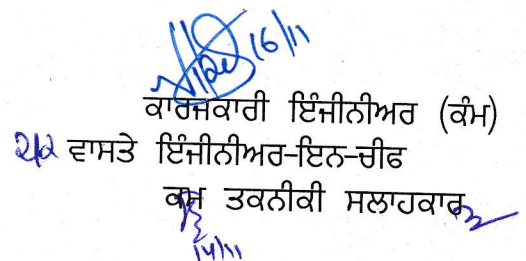 16/11
ਕਾਰਜਕਾਰੀ ਇੰਜੀਨੀਅਰ (ਕੰਮ)
ਵਾਸਤੇ ਇੰਜੀਨੀਅਰ-ਇਨ-ਚੀਫ
ਕਮ ਤਕਨੀਕੀ ਸਲਾਹਕਾਰ
14/11